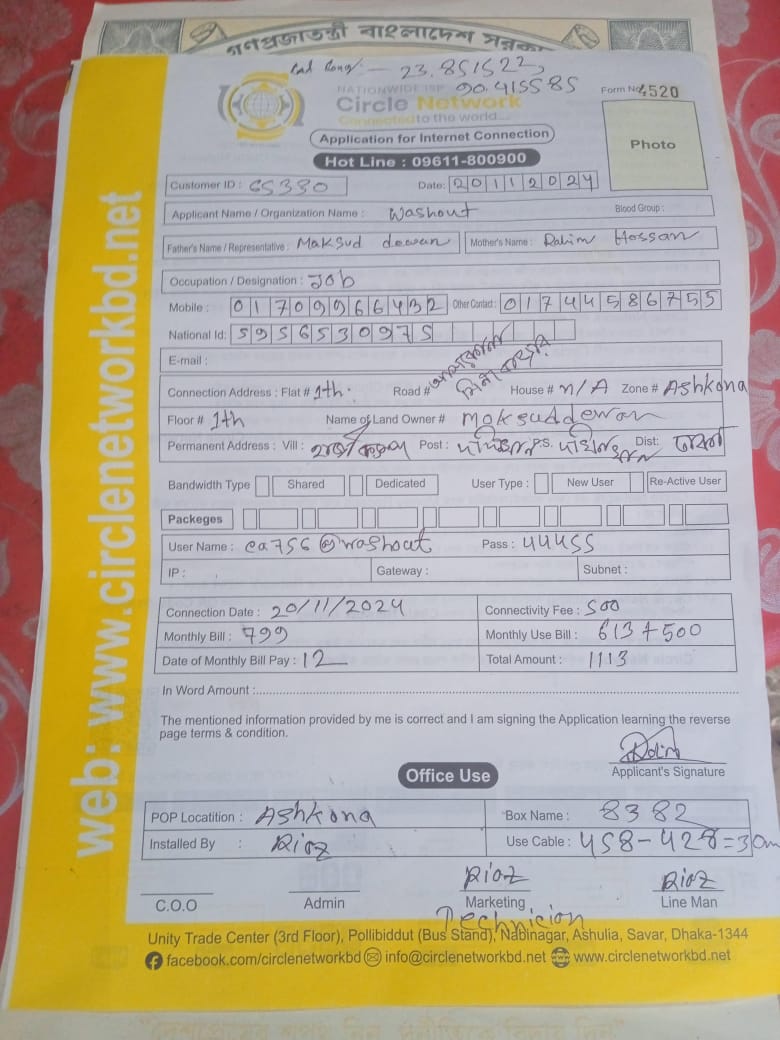 গণপ্রজাতন্ত্রী বাংলাদেশ সরকা
23.851522,
90.415585
NATIONWIDE ISP
Circle Network
Connected to the world...
Form No 4520
Application for Internet Connection
Photo
Hot Line : 09611-800900
Customer ID : 65330 Date: 20112024
Applicant Name / Organization Name : Washout Blood Group :
Father's Name / Representative : Maksud dewan Mother's Name : Rahim Hossan
Occupation / Designation : Job
Mobile : 01709966432 Other Contact : 01744586755
National Id: 5956530975
E-mail :
Connection Address : Flat # 1th. Road # House # n/A Zone # Ashkona
Floor # 1th Name of Land Owner # moksuddewan
Permanent Address : Vill : Post : P.S. Dist:
Bandwidth Type Shared Dedicated User Type : New User Re-Active User
Packeges
User Name : ca756@washout Pass : 44455
IP : Gateway : Subnet :
Connection Date : 20/11/2024 Connectivity Fee : 500
Monthly Bill : 799 Monthly Use Bill : 613+500
Date of Monthly Bill Pay : 12 Total Amount : 1113
In Word Amount :
The mentioned information provided by me is correct and I am signing the Application learning the reverse
page terms & condition.
Applicant's Signature
Office Use
POP Locatition : Ashkona Box Name : 8382
Installed By : Rioz Use Cable : 458-428=30m
Rioz Rioz
C.O.O Admin Marketing Line Man
Technicion
Unity Trade Center (3rd Floor), Pollibiddut (Bus Stand), Nabinagar, Ashulia, Savar, Dhaka-1344
facebook.com/circlenetworkbd info@circlenetworkbd.net www.circlenetworkbd.net
web: www.circlenetworkbd.net